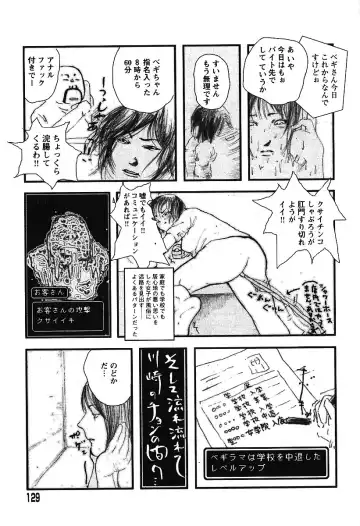 ベギさん今日
これからなんで
すけどぉ
あいや
今日はもぉ
バイト先で
してていうか
すいません
もう無理です
ベギさん
指名入った
8時から
60分
アナル
ファック
付きでー
ちょっくら
浣腸して
くるわ!!
クサイチンコ
しゃぶろうが
肛門すり切れ
ようが
イイ!!
嘘でもイイ!!
コミュニケーション
があれば!!
家庭でも学校でも
居心地の悪い思いを
した女子が風俗に
逃路を見出す
よくあるパターンだった
お客さん
お客さんの攻撃
クサイイキ
ベギラマは学校を中退した
レベルアップ
そして流れ流れて
川崎のチョンの間へ…
のどか
だ…
129